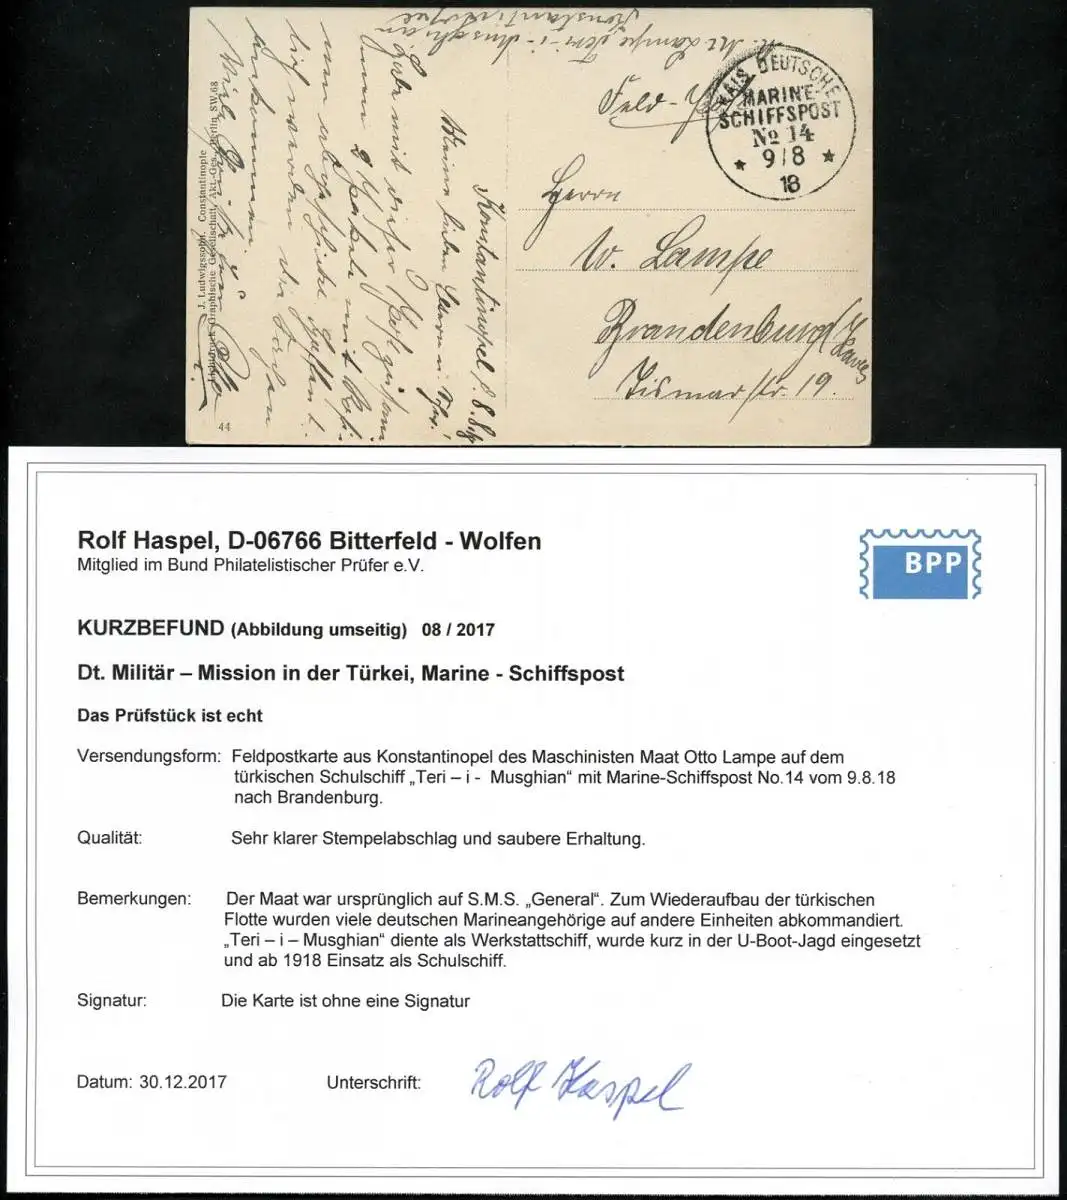 Konstantinopel d. 8.8.18
Meine lieben Eltern u.
Habe mit dieser Post gestern
2
ankommen.
Viele Grüße
J. Ludwigssohn. Constantinople
Graphische Gesellschaft, Akt.-Ges., Berlin SW. 68
44
M. Mt Lampe Teri-i-Muschian
Konstantinopel
Feld-
KAIS. DEUTSCHE
MARINE-
SCHIFFSPOST
No 14
9/8
18
Herrn
W. Lampe
Brandenburg/Havel
str. 19.
Rolf Haspel, D-06766 Bitterfeld - Wolfen
Mitglied im Bund Philatelistischer Prüfer e.V.
BPP
KURZBEFUND (Abbildung umseitig) 08 / 2017
Dt. Militär – Mission in der Türkei, Marine - Schiffspost
Das Prüfstück ist echt
Versendungsform: Feldpostkarte aus Konstantinopel des Maschinisten Maat Otto Lampe auf dem
türkischen Schulschiff „Teri – i - Musghian“ mit Marine-Schiffspost No.14 vom 9.8.18
nach Brandenburg.
Qualität: Sehr klarer Stempelabschlag und saubere Erhaltung.
Bemerkungen: Der Maat war ursprünglich auf S.M.S. „General“. Zum Wiederaufbau der türkischen
Flotte wurden viele deutschen Marineangehörige auf andere Einheiten abkommandiert.
„Teri – i – Musghian“ diente als Werkstattschiff, wurde kurz in der U-Boot-Jagd eingesetzt
und ab 1918 Einsatz als Schulschiff.
Signatur: Die Karte ist ohne eine Signatur
Datum: 30.12.2017 Unterschrift: Rolf Haspel